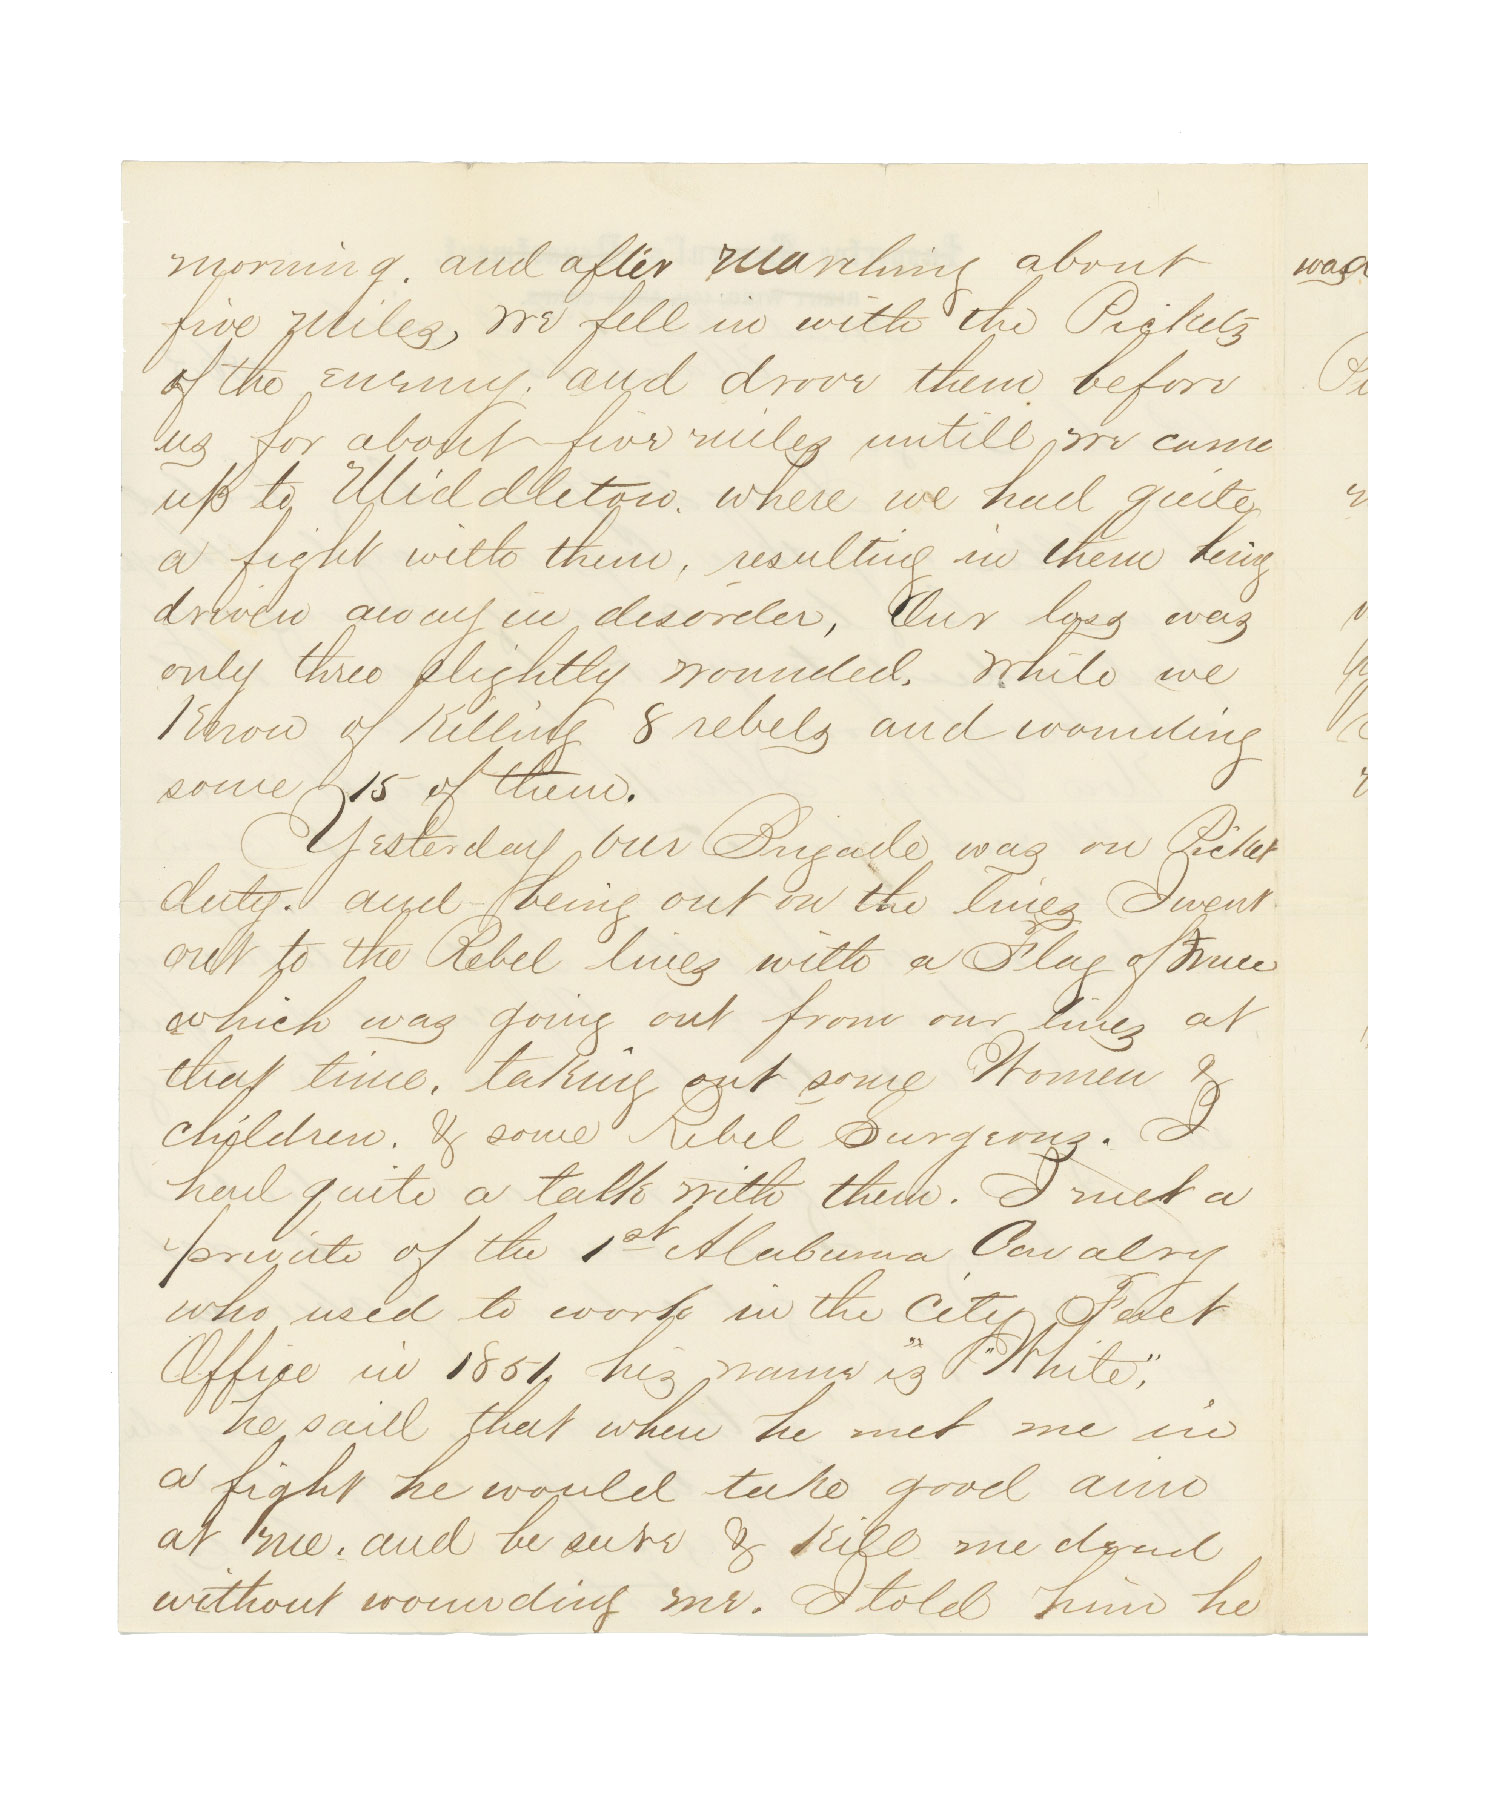 morning. and after Marching about
five Miles, we fell in with the Pickets
of the enemy. and drove them before
us for about five miles untill we came
up to Middleton. where we had quite
a fight with them, resulting in them being
driven away in disorder, Our loss was
only three slightly wounded. While we
Know of Killing 8 rebels and wounding
some 15 of them.
Yesterday our Brigade was on Picket
duty. and being out on the lines I went
out to the Rebel lines with a Flag of truce
which was going out from our lines at
that time. taking out some Women &
children. & some Rebel Surgeons. I
had quite a talk with them. I met a
private of the 1st Alabama Cavalry
who used to work in the City Fact
Office in 1851, his name is "White",
he said that when he met me in
a fight he would take good aim
at me. and be sure & Kill me dead
without wounding me. I told him he
was